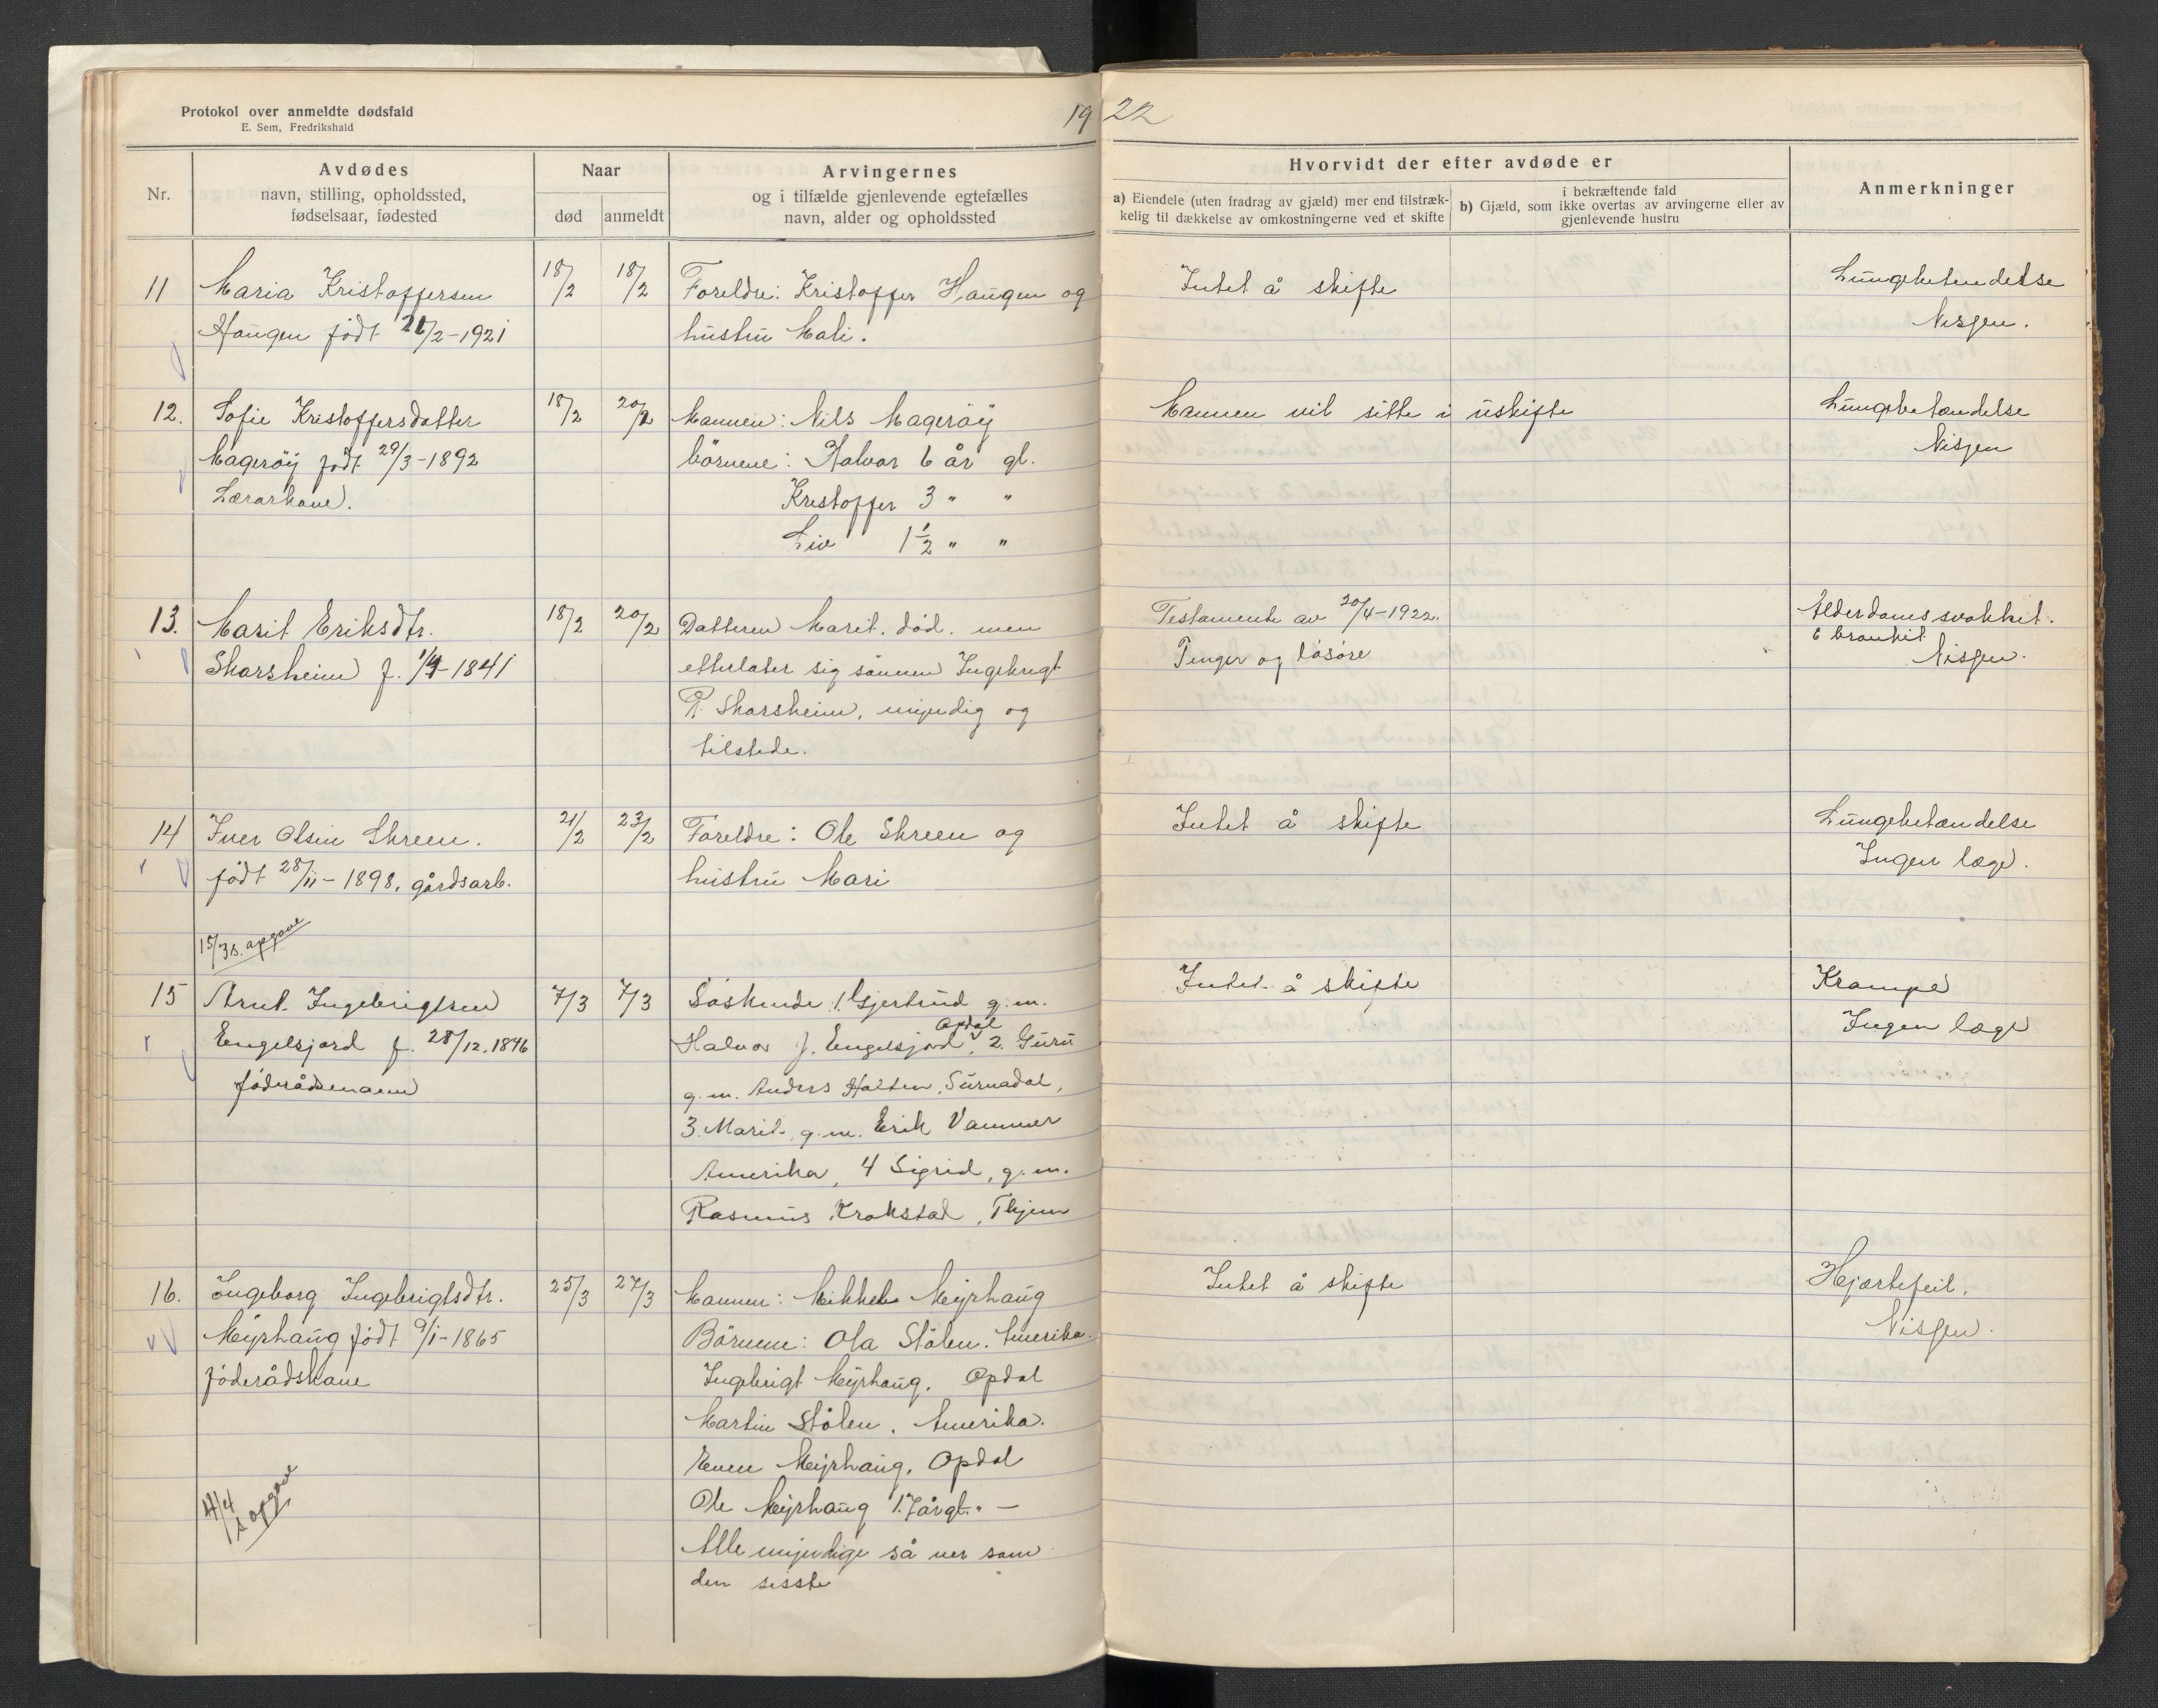 Protokol over anmeldte dødsfald
E. Sem, Fredrikshald
19 22
Nr.
Avdødes
navn, stilling, opholdssted,
fødselsaar, fødested
Naar
død anmeldt
Arvingernes
og i tilfælde gjenlevende egtefælles
navn, alder og opholdssted
Hvorvidt der efter avdøde er
a) Eiendele (uten fradrag av gjæld) mer end tilstræk-
kelig til dækkelse av omkostningerne ved et skifte
i bekræftende fald
b) Gjæld, som ikke overtas av arvingerne eller av
gjenlevende hustru
Anmerkninger
11 Maria Kristoffersen 18/2 18/2 Foreldre: Kristoffer Haugen og Intet å skifte Lungebetendelse
Haugen født 21/2-1921 hustru Mali. Nisjen.
12. Sofie Kristoffersdatter 18/2 20/2 Mannen: Nils Magerøy Mannen vil sitte i uskifte Lungebetændelse
Magerøy født 29/3-1892 børnene: Halvor 6 år gl. Nisjen
Lærarkone. Kristoffer 3 " "
Liv 1½ " "
13. Marit Eriksdtr. 18/2 20/2 Datteren Marit. død. men Testamente av 20/4-1922. Alderdomssvakhet.
Skorsheim f. 1/4-1841 etterlater sig sønnen Ingebrigt Penger og løsøre & bronkit Nisjen.
P. Skorsheim, myndig og
tilstede.
14 Iver Olsen Skreen. 21/2 23/2 Foreldre: Ole Skreen og Intet å skifte Lungebetændelse
født 28/11-1898. gårdsarb. hustru Mari Ingen læge.
15/3 s. opgave
15 Arnt Ingebrigtsen 7/3 7/3 Søskende: 1. Gjertrud g.m. Intet å skifte Krampe
Engelsjord f. 28/12.1846 Halvor J. Engelsjord, Opdal 2. Guru Ingen læge
føderådsmann g.m. Anders Halten, Surnadal,
3. Marit g.m. Erik Vammer
Amerika, 4 Sigrid, g.m.
Rasmus Krokstad, Thjem
16. Ingeborg Ingebrigtsdtr. 25/3 27/3 Mannen: Mikkel Myrhaug Intet å skifte Hjærtefeil.
Myrhaug født 9/1-1865 Børnene: Ola Stølen. Amerika. Nisjen.
føderådskone Ingebrigt Myrhaug. Opdal
Martin Stølen. Amerika.
Even Myrhaug, Opdal
4/4 s. opgave Ole Myrhaug 17 år gl. " —
Alle myndige så ner som
den sisste